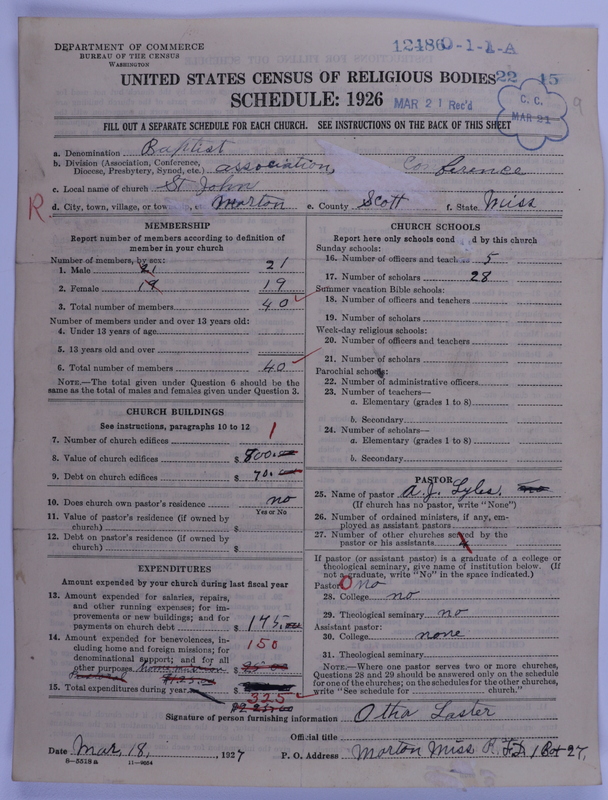 DEPARTMENT OF COMMERCE
BUREAU OF THE CENSUS
WASHINGTON
12486 0-1-1-A
UNITED STATES CENSUS OF RELIGIOUS BODIES
22 15
SCHEDULE: 1926
MAR 21 Rec'd
C. C.
MAR 21
9
FILL OUT A SEPARATE SCHEDULE FOR EACH CHURCH. SEE INSTRUCTIONS ON THE BACK OF THIS SHEET
a. Denomination Baptist
b. Division (Association, Conference, Diocese, Presbytery, Synod, etc.) association, Conference
c. Local name of church St John
R
d. City, town, village, or township, etc. Morton e. County Scott f. State Miss
MEMBERSHIP
Report number of members according to definition of
member in your church
Number of members, by sex:
1. Male 21 21
2. Female 19 19
3. Total number of members 40
Number of members under and over 13 years old:
4. Under 13 years of age
5. 13 years old and over
6. Total number of members 40
NOTE.—The total given under Question 6 should be the
same as the total of males and females given under Question 3.
CHURCH BUILDINGS
See instructions, paragraphs 10 to 12
7. Number of church edifices 1
8. Value of church edifices $ 800.
9. Debt on church edifices $ 70.
10. Does church own pastor's residence? no
Yes or No
11. Value of pastor's residence (if owned by
church) $
12. Debt on pastor's residence (if owned by
church) $
EXPENDITURES
Amount expended by your church during last fiscal year
13. Amount expended for salaries, repairs,
and other running expenses; for im-
provements or new buildings; and for
payments on church debt $ 175.
14. Amount expended for benevolences, in-
cluding home and foreign missions; for
denominational support; and for all
other purposes 150
15. Total expenditures during year $ 325
CHURCH SCHOOLS
Report here only schools conducted by this church
Sunday schools:
16. Number of officers and teachers 5
17. Number of scholars 28
Summer vacation Bible schools:
18. Number of officers and teachers
19. Number of scholars
Week-day religious schools:
20. Number of officers and teachers
21. Number of scholars
Parochial schools:
22. Number of administrative officers
23. Number of teachers—
a. Elementary (grades 1 to 8)
b. Secondary
24. Number of scholars—
a. Elementary (grades 1 to 8)
b. Secondary
PASTOR
25. Name of pastor A. J. Lyles.
(If church has no pastor, write "None")
26. Number of ordained ministers, if any, em-
ployed as assistant pastors
27. Number of other churches served by the
pastor or his assistants
If pastor (or assistant pastor) is a graduate of a college or
theological seminary, give name of institution below. (If
not a graduate, write "No" in the space indicated.)
Pastor: no
28. College no
29. Theological seminary no
Assistant pastor:
30. College none
31. Theological seminary
NOTE.—Where one pastor serves two or more churches,
Questions 28 and 29 should be answered only on the schedule
for one of the churches; on the schedules for the other churches,
write "See schedule for church."
Signature of person furnishing information Otha Laster
Official title
Date Mar, 18, 1927 P. O. Address Morton Miss R. F. D. 1 Box 27,
8-5518a 11-9664